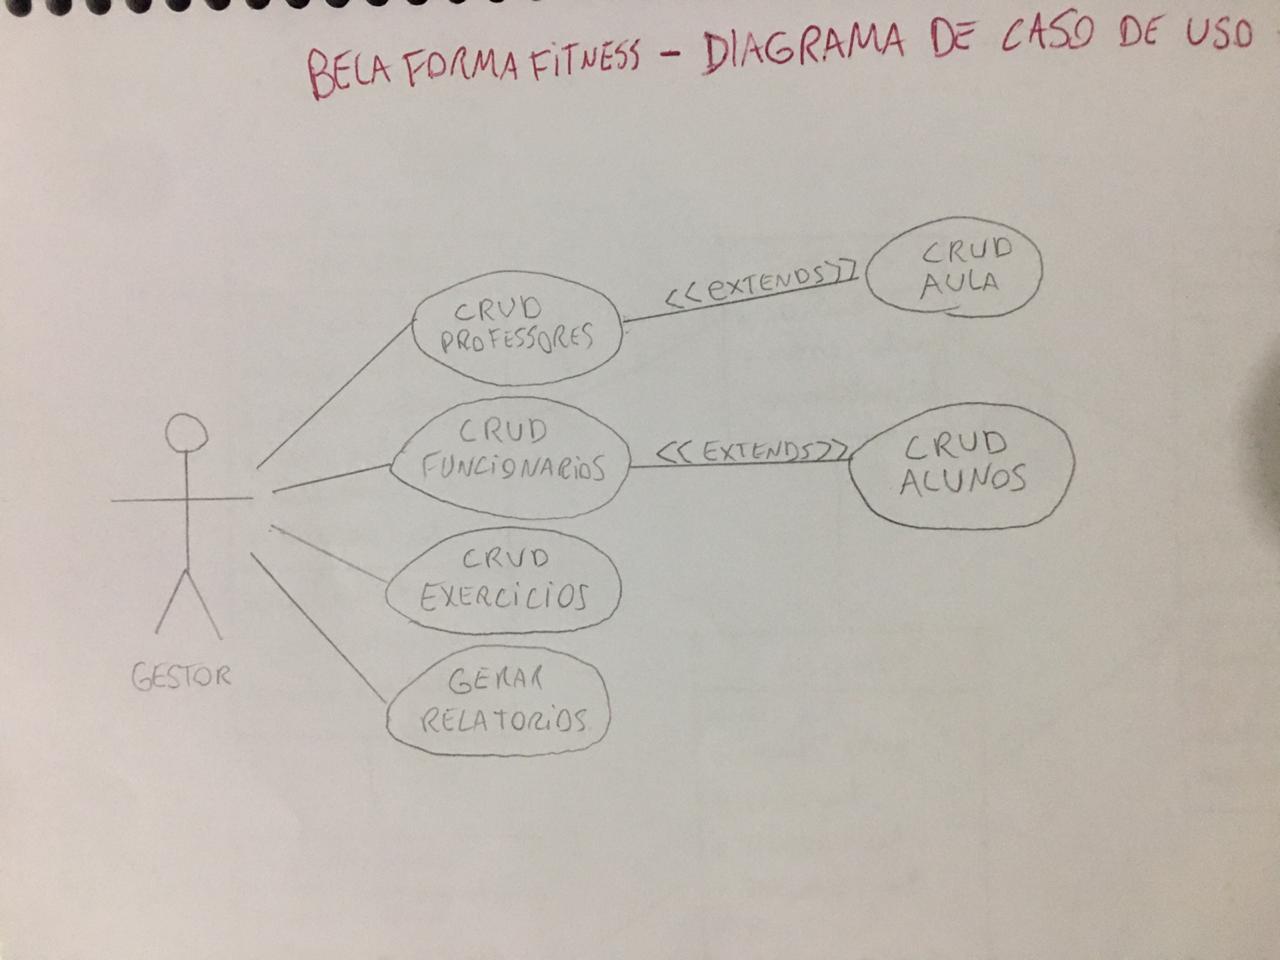 BELA FORMA FITNESS - DIAGRAMA DE CASO DE USO
CRUD
PROFESSORES
<<EXTENDS>>
CRUD
AULA
CRUD
FUNCIONARIOS
<<EXTENDS>>
CRUD
ALUNOS
CRUD
EXERCICIOS
GERAR
RELATORIOS
GESTOR